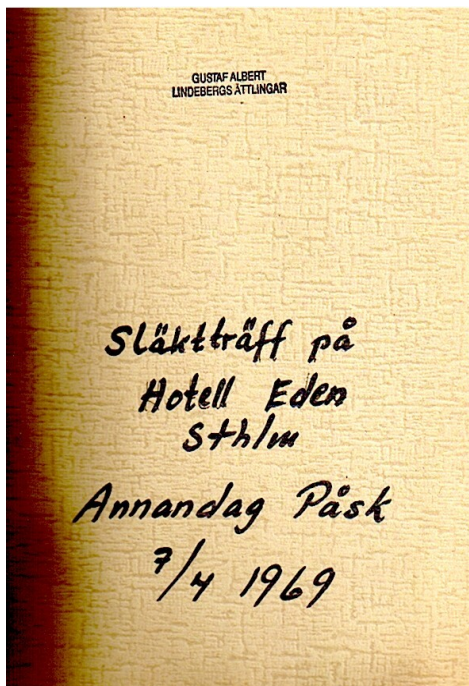 GUSTAF ALBERT
LINDEBERGS ÄTTLINGAR
Släktträff på
Hotell Eden
Sthlm
Annandag Påsk
7/4 1969